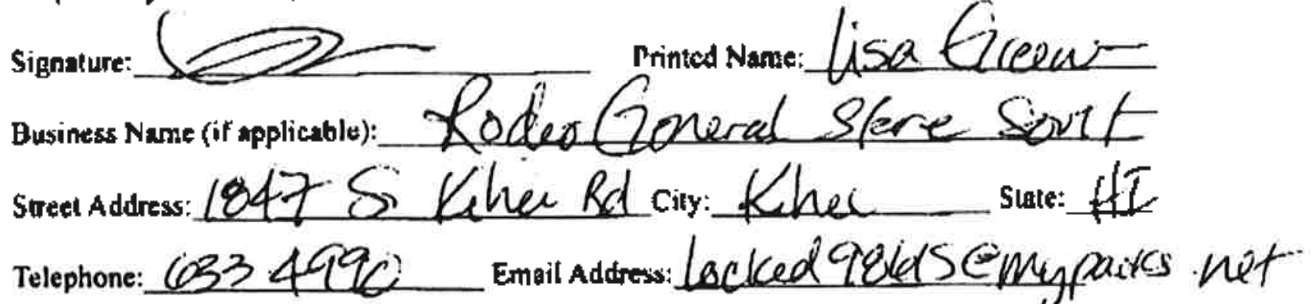 Signature: Printed Name: Lisa Green
Business Name (if applicable): Rodeo General Store
Street Address: 1847 S Kihei Rd City: Kihei State: HI
Telephone: 633 4990 Email Address: